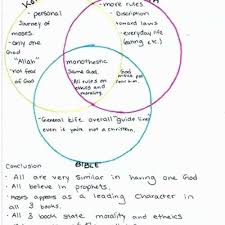 - personal
Journey of
moses.
- only one
God
"Allah"
not fear
of God
- more rules
- Discription
toward laws
- everyday life
(eating etc.)
monotheistic
Same God.
All rules on
ethics and
morality.
God
- General life overall "guide line"
even if your not a christian.
BIBLE
Conclusion
- All are very similar in having one God
- All believe in prophets.
- Moses appears as a leading Character in
all 3 books.
- All 3 books state morality and etheics